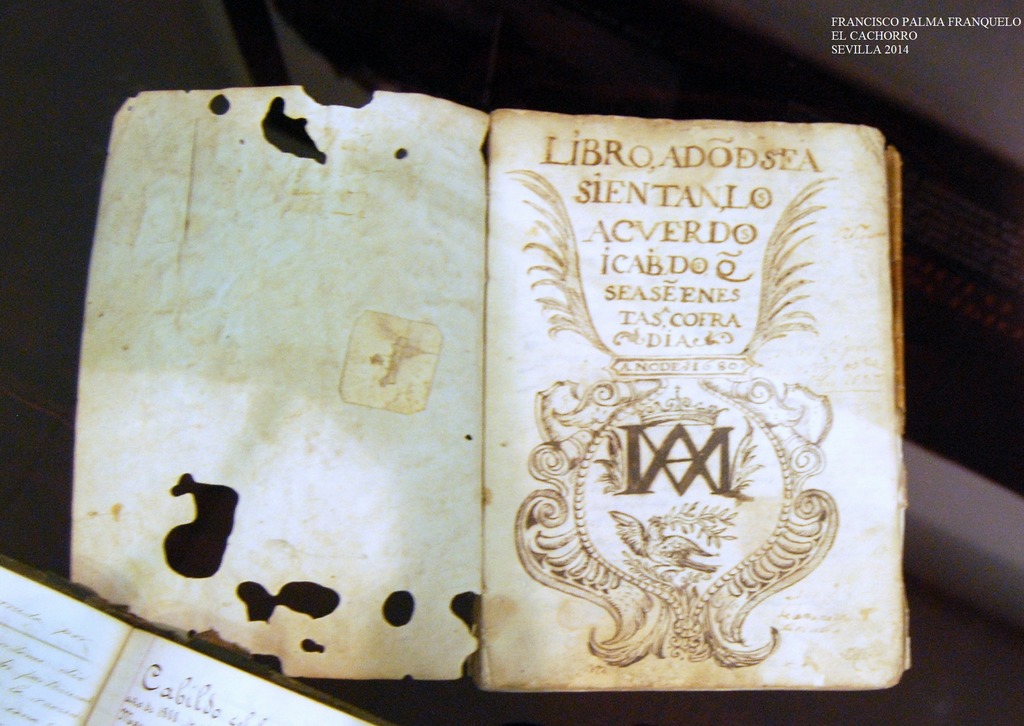 FRANCISCO PALMA FRANQUELO
EL CACHORRO
SEVILLA 2014
LIBRO, ADÕDSEA
SIENTAN, LOS
ACVERDOS
iCABiLDO Q̃
SEASẼ ENES
TAS, COFRA
DIA
ANODE 1680
Cabildo